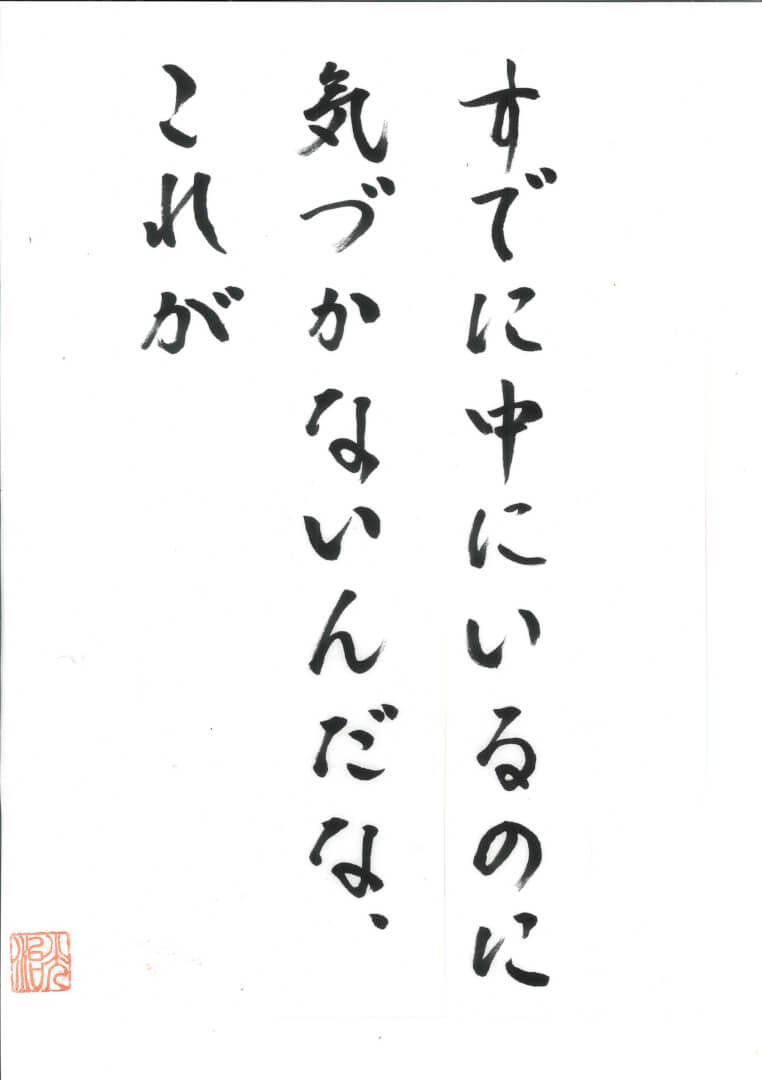 すでに中にいるのに
気づかないんだな、
これが